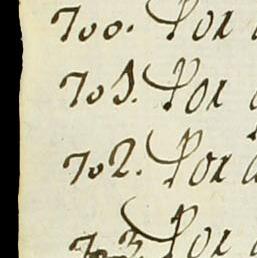 700. Por
701. Por
702. Por
703. Por